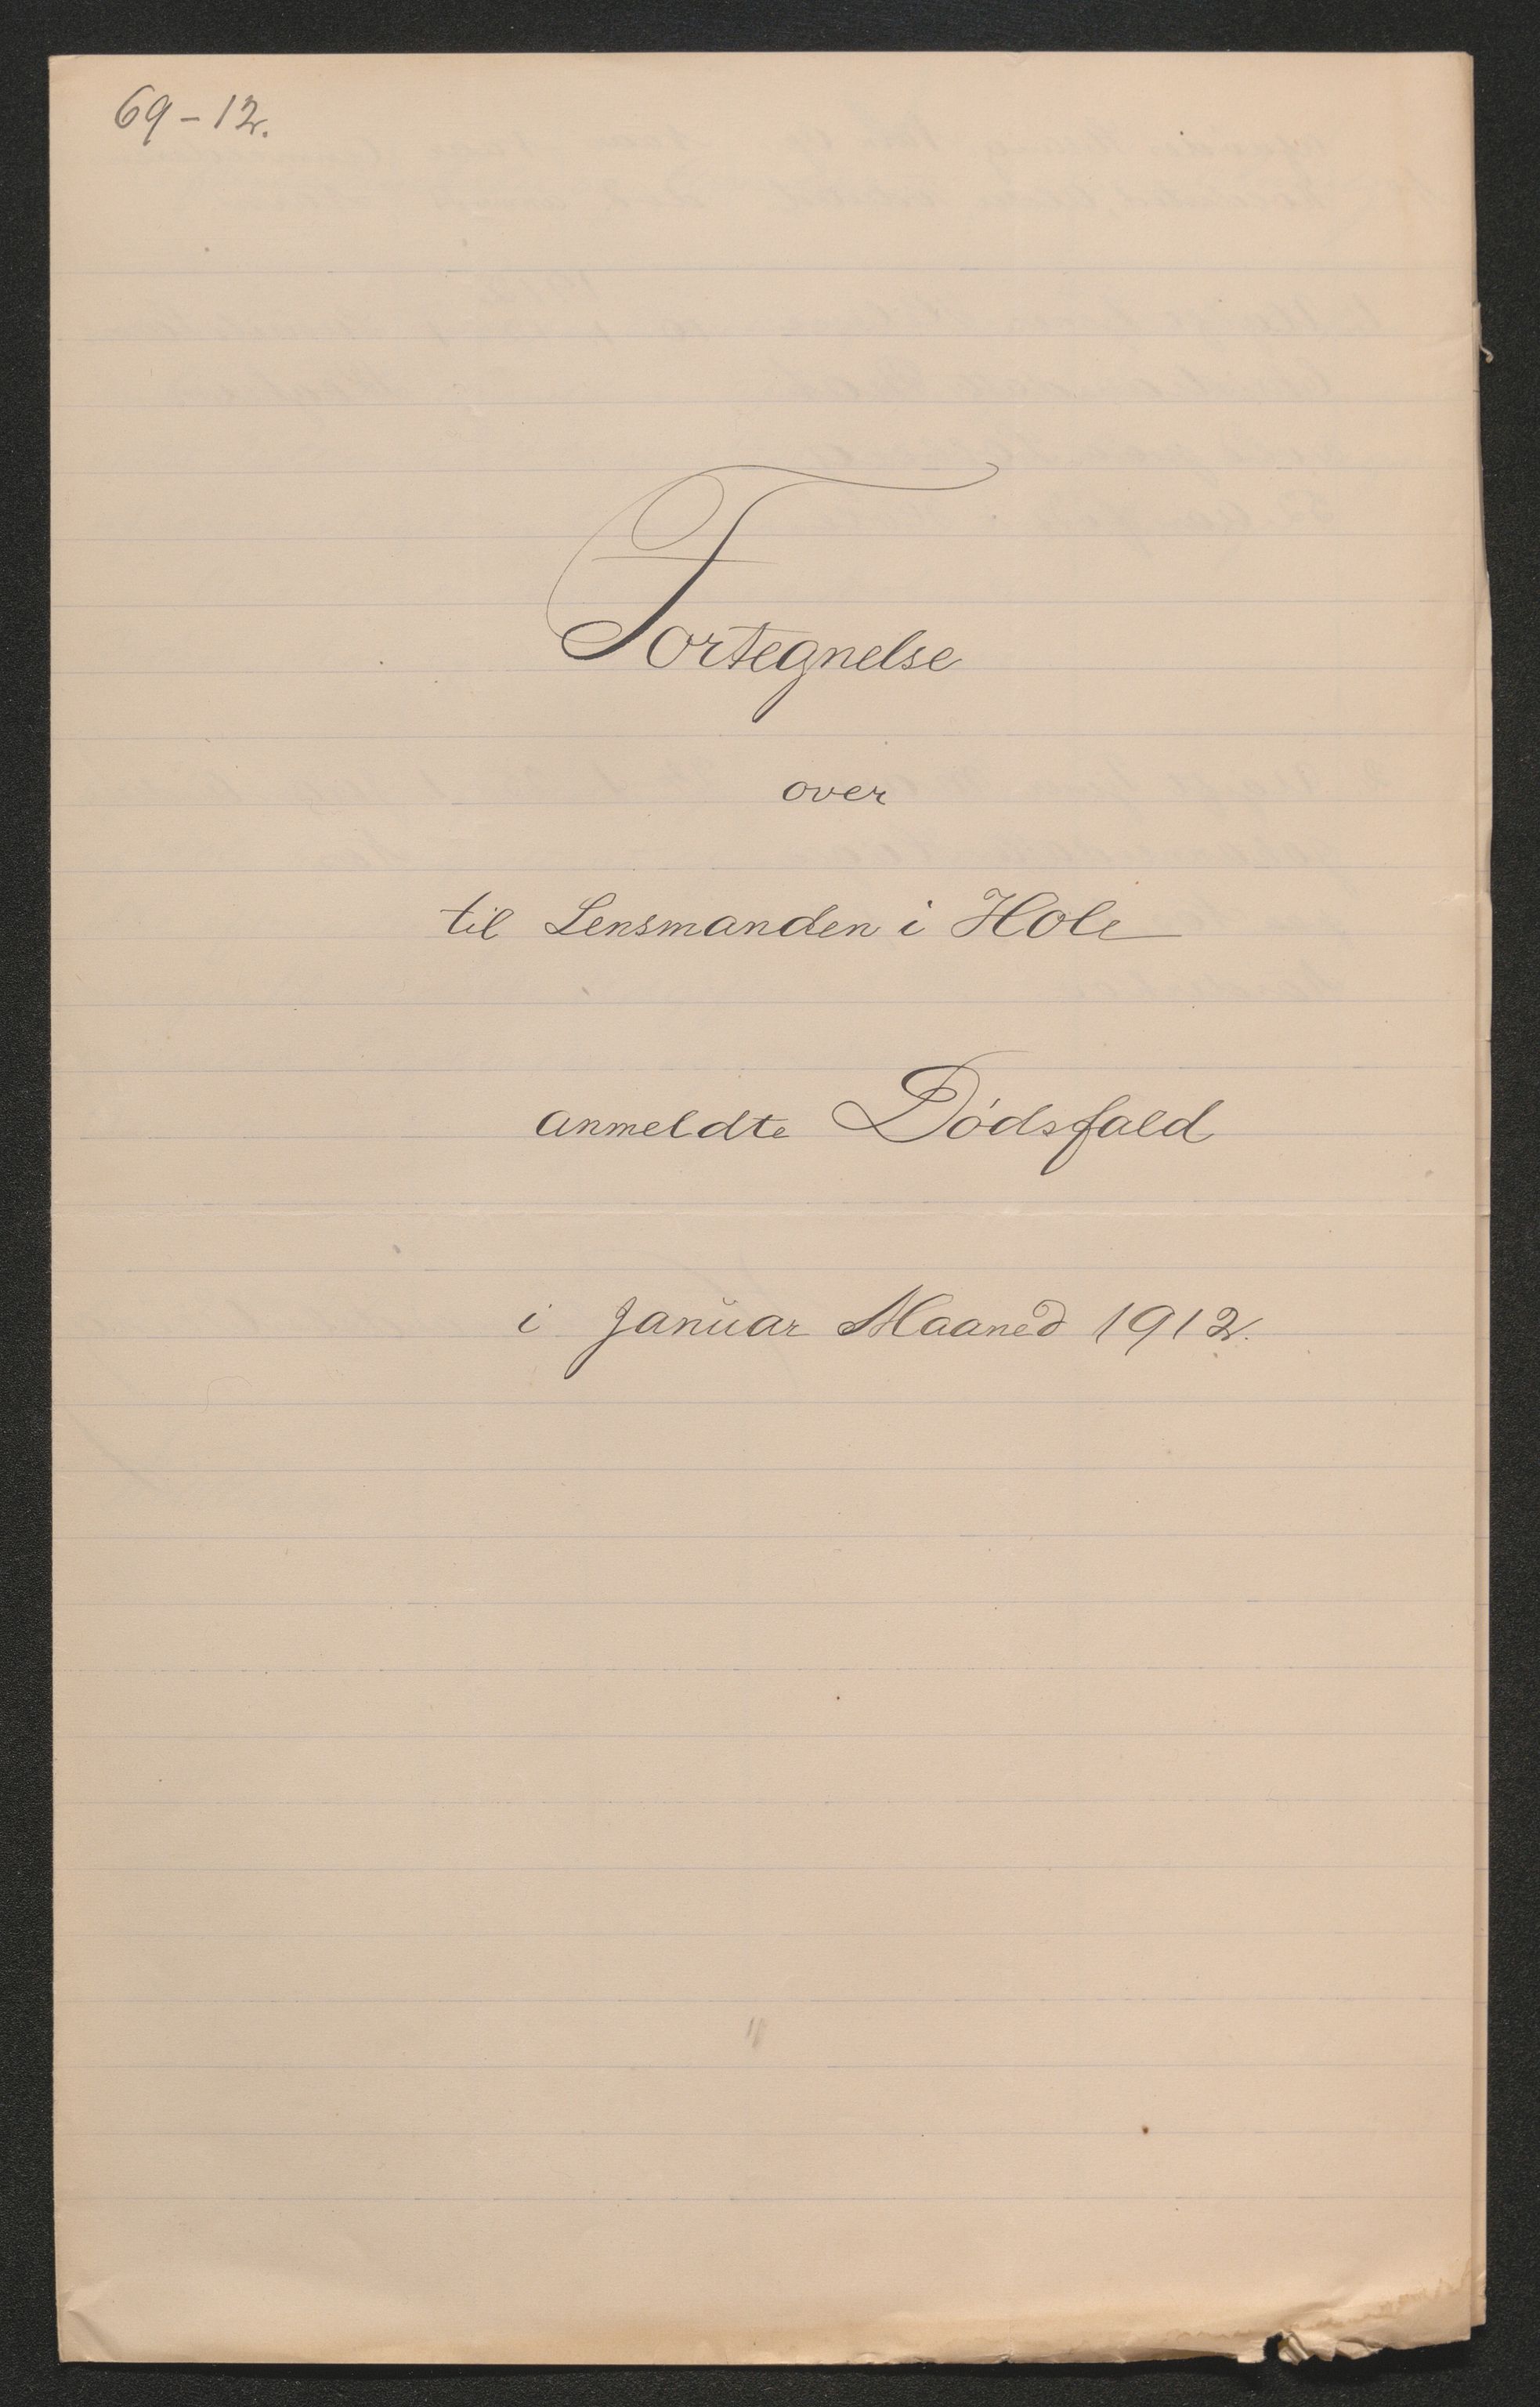 69-12.
Fortegnelse
over
til Lensmanden i Hole
anmeldte Dødsfald
i Januar Maaned 1912.